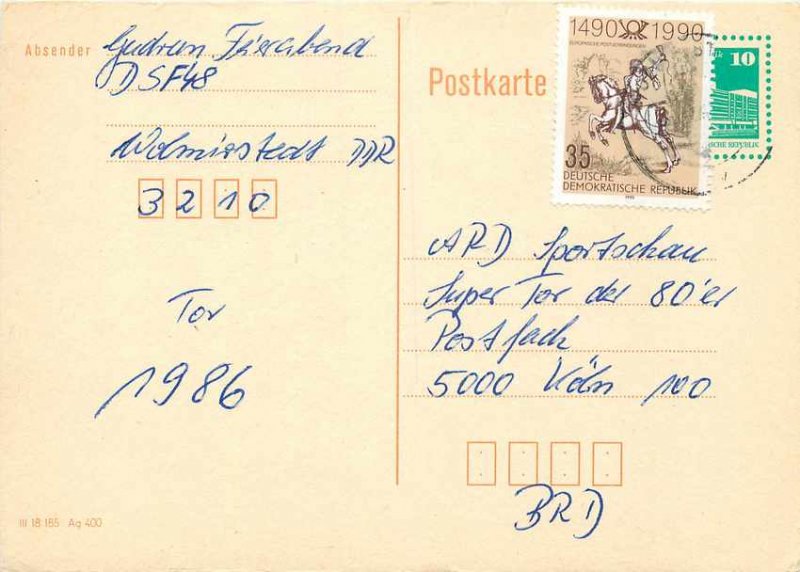 Absender Gudrun Feierabend
DSF 48
Wolmirstedt DDR
3210
Tor
1986
III 18 185 Ag 400
Postkarte
1490 1990
EUROPÄISCHE POSTVERBINDUNGEN
35
DEUTSCHE
DEMOKRATISCHE REPUBLIK
1990
10
ISCHE REPUBLIK
ARD Sportschau
Super Tor der 80'er
Postfach
5000 Köln 100
BRD